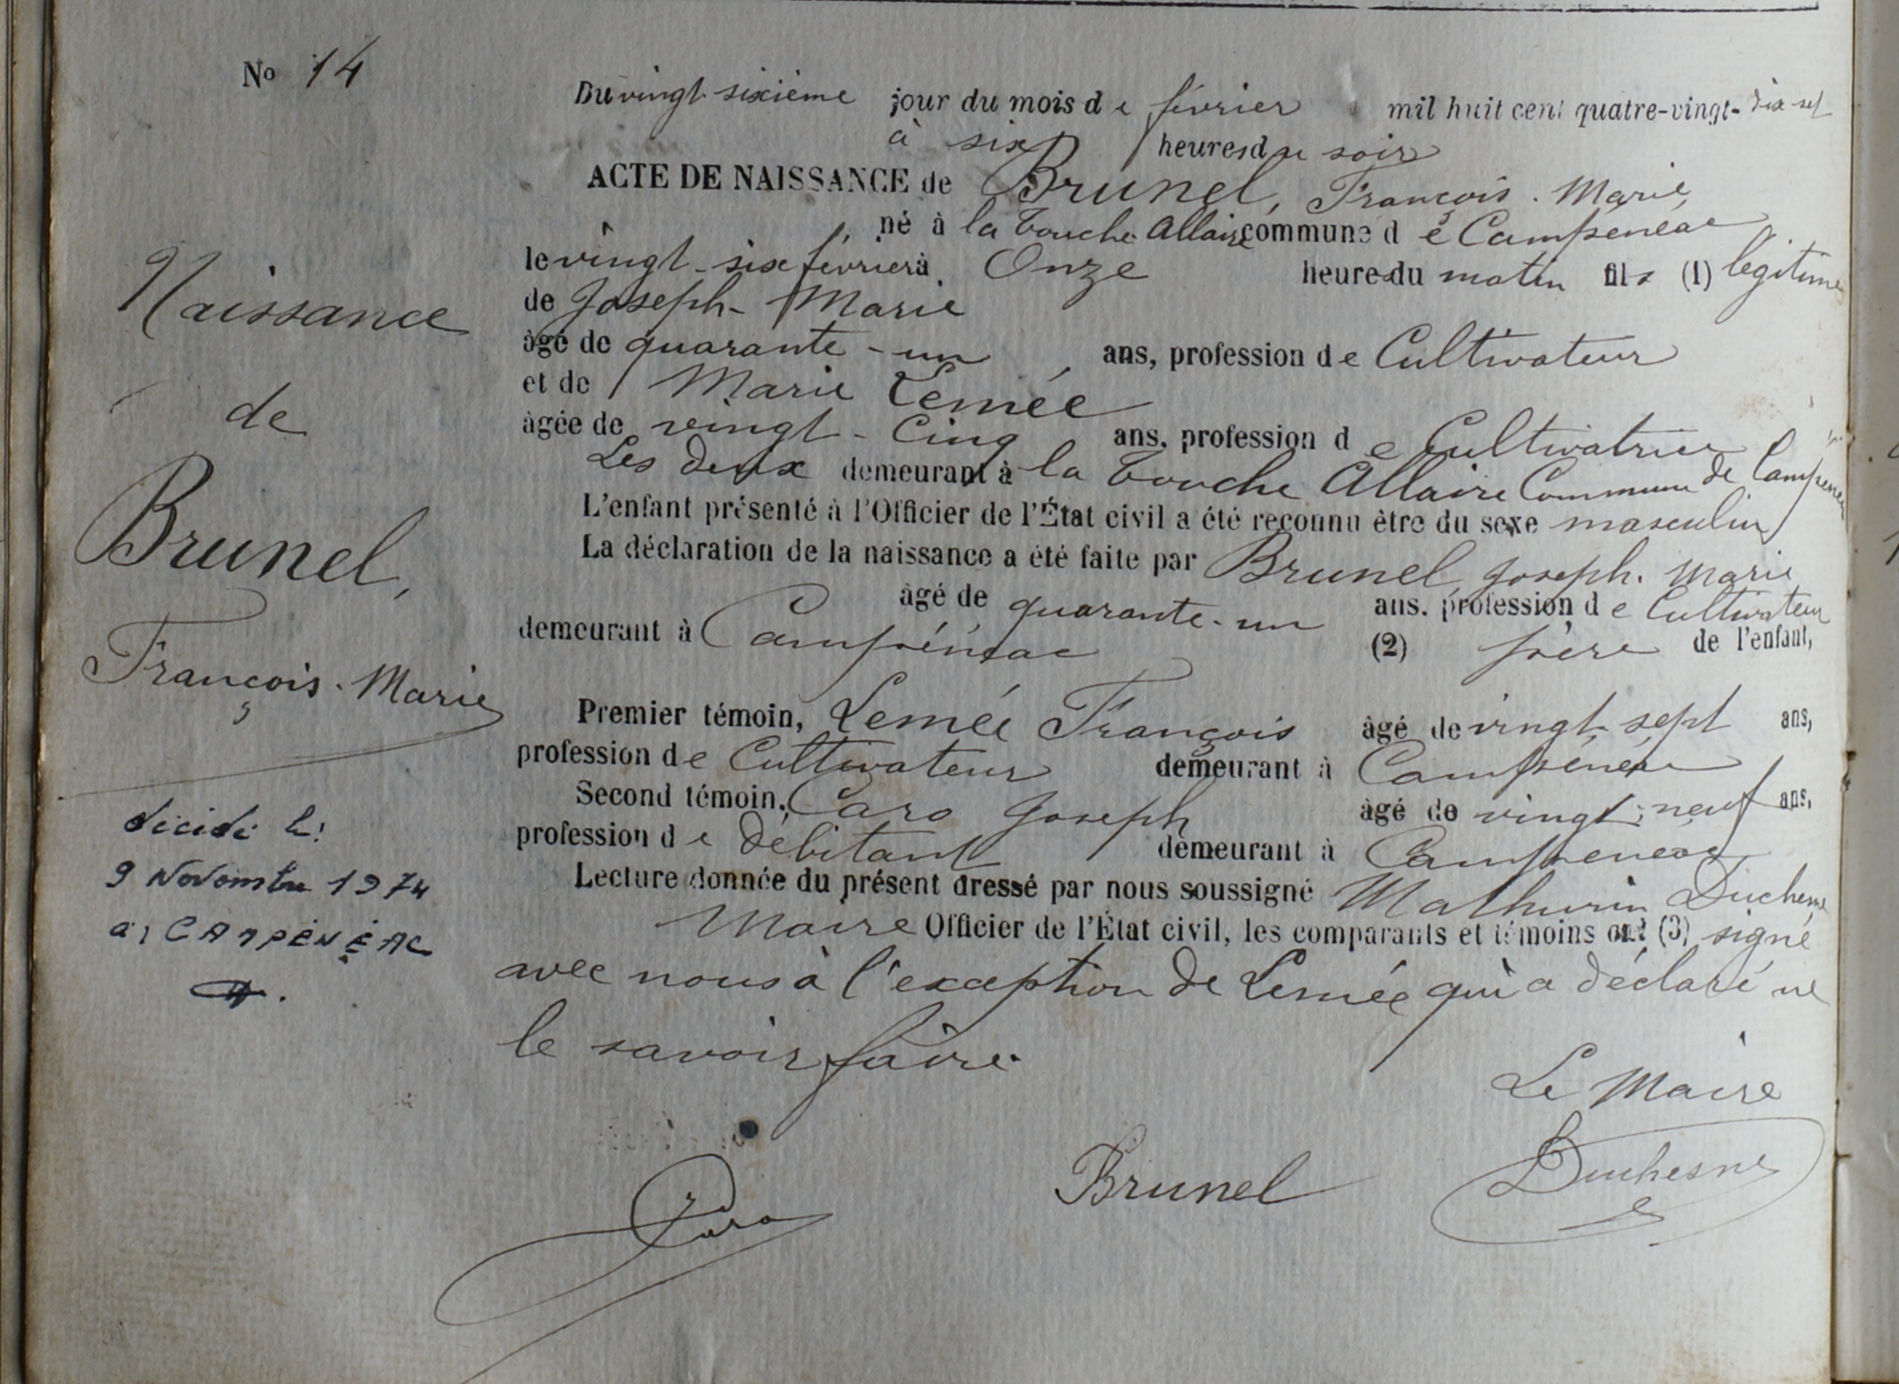 No 14
Naissance
de
Brunel,
François-Marie
décédé le:
9 Novembre 1974
à; CAMPÉNÉAC
Du vingt-sixième jour du mois de février mil huit cent quatre-vingt-dix-sept
à six heures du soir
ACTE DE NAISSANCE de Brunel, François-Marie,
né à la touche Allaire commune de Campénéac
le vingt-six février à Onze heures du matin fils (1) légitime
de Joseph-Marie
âgé de quarante-un ans, profession de Cultivateur
et de Marie Lemée
âgée de vingt-Cinq ans, profession de Cultivatrice
Les deux demeurant à la touche Allaire Commune de Campénéac
L'enfant présenté à l'Officier de l'État civil a été reconnu être du sexe masculin
La déclaration de la naissance a été faite par Brunel Joseph-Marie
âgé de quarante-un ans, profession de Cultivateur
demeurant à Campénéac (2) père de l'enfant,
Premier témoin, Lemée François âgé de vingt-sept ans,
profession de Cultivateur demeurant à Campénéac
Second témoin, Caro Joseph âgé de vingt-neuf ans,
profession de débitant demeurant à Campénéac
Lecture donnée du présent dressé par nous soussigné Mathurin Duchesne
Maire Officier de l'État civil, les comparants et témoins ont (3) signé
avec nous à l'exception de Lemée qui a déclaré ne
le savoir faire.
Le Maire
Caro Brunel Duchesne